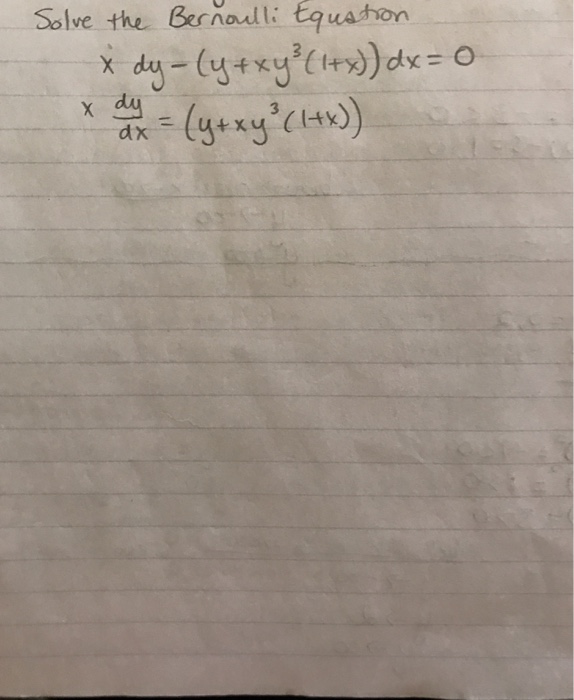 Solve the Bernoulli Equation
x dy - (y + xy³(1+x)) dx = 0
x dy/dx = (y + xy³(1+x))